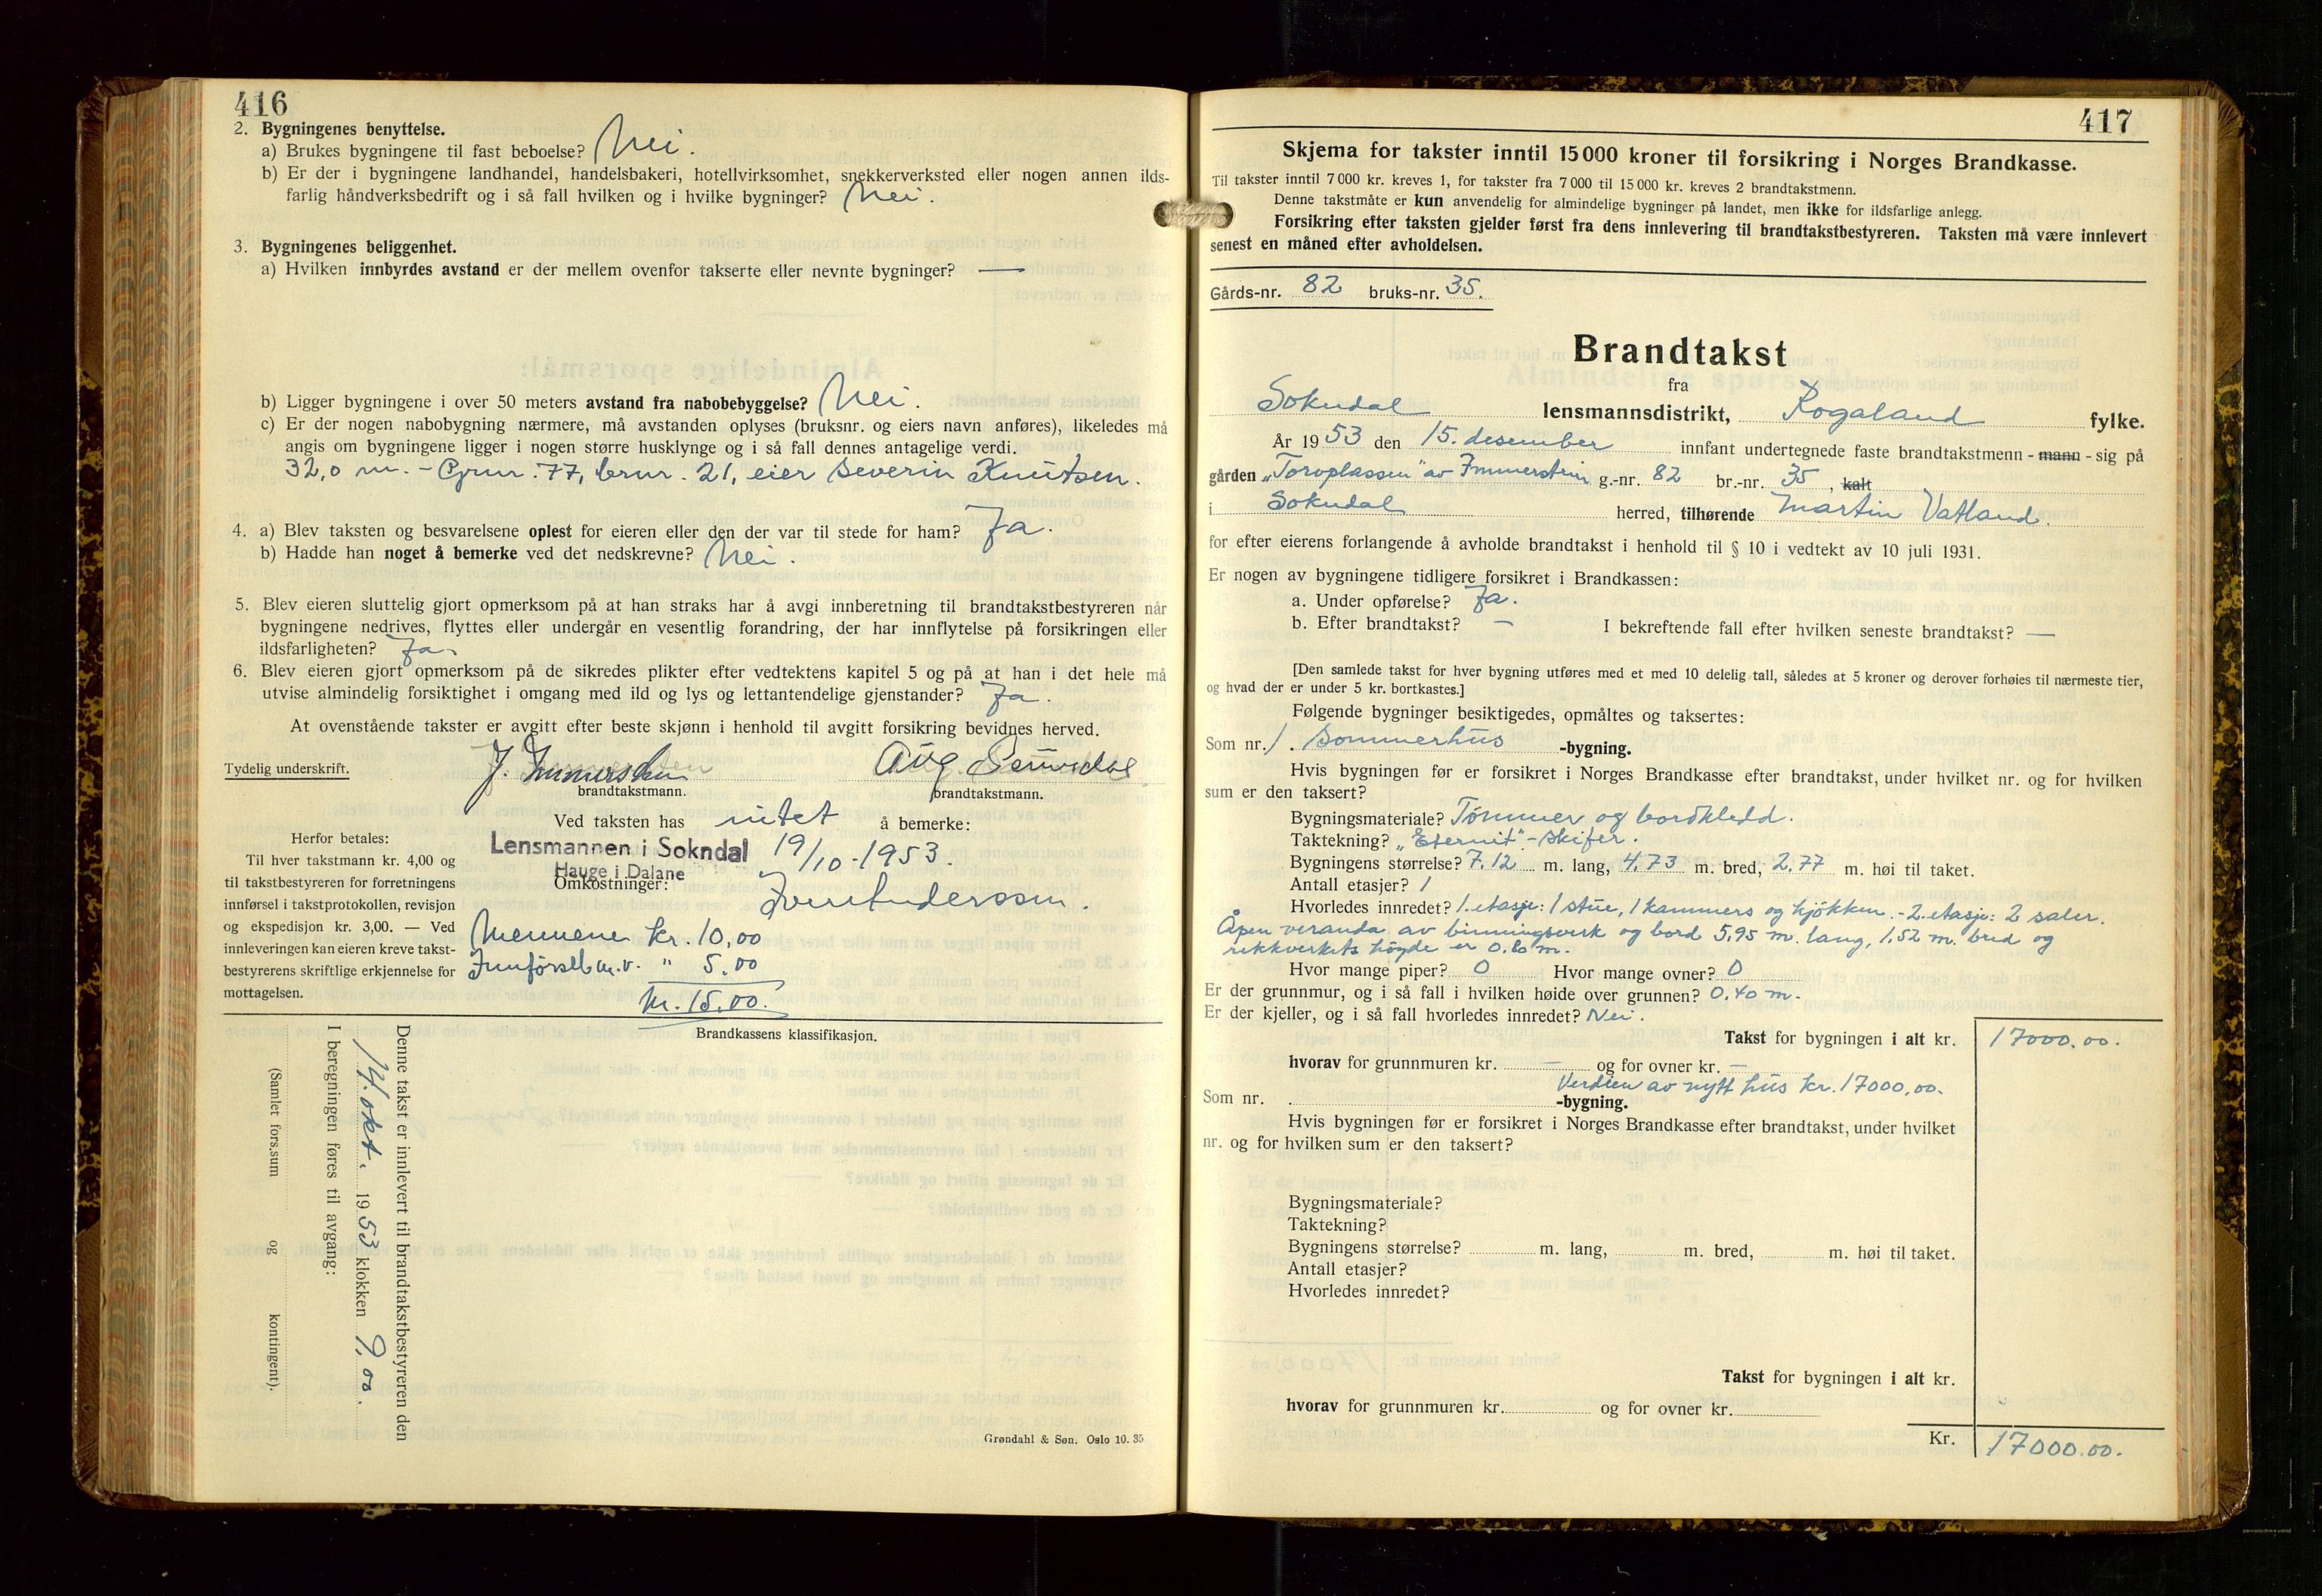 416
2. Bygningenes benyttelse.
a) Brukes bygningene til fast beboelse? Nei.
b) Er der i bygningene landhandel, handelsbakeri, hotellvirksomhet, snekkerverksted eller nogen annen ilds-
farlig håndverksbedrift og i så fall hvilken og i hvilke bygninger? Nei.
3. Bygningenes beliggenhet.
a) Hvilken innbyrdes avstand er der mellem ovenfor takserte eller nevnte bygninger? —
b) Ligger bygningene i over 50 meters avstand fra nabobebyggelse? Nei.
c) Er der nogen nabobygning nærmere, må avstanden oplyses (bruksnr. og eiers navn anføres), likeledes må
angis om bygningene ligger i nogen større husklynge og i så fall dennes antagelige verdi.
32,0 m. - Grnr. 77, brnr. 21, eier Severin Knutsen.
4. a) Blev taksten og besvarelsene oplest for eieren eller den der var til stede for ham? Ja.
b) Hadde han noget å bemerke ved det nedskrevne? Nei.
5. Blev eieren sluttelig gjort opmerksom på at han straks har å avgi innberetning til brandtakstbestyreren når
bygningene nedrives, flyttes eller undergår en vesentlig forandring, der har innflytelse på forsikringen eller
ildsfarligheten? Ja.
6. Blev eieren gjort opmerksom på de sikredes plikter efter vedtektens kapitel 5 og på at han i det hele må
utvise almindelig forsiktighet i omgang med ild og lys og lettantendelige gjenstander? Ja.
At ovenstående takster er avgitt efter beste skjønn i henhold til avgitt forsikring bevidnes herved.
Tydelig underskrift. J. Immerstein Aug
brandtakstmann. brandtakstmann.
Ved taksten has intet å bemerke:
Lensmannen i Sokndal 19/10-1953.
Hauge i Dalane
Omkostninger:
Iver Anderssen.
Herfor betales:
Til hver takstmann kr. 4,00 og
til takstbestyreren for forretningens
innførsel i takstprotokollen, revisjon
og ekspedisjon kr. 3,00. — Ved
innleveringen kan eieren kreve takst-
bestyrerens skriftlige erkjennelse for
mottagelsen.
Mennene kr. 10,00
Innførsel m.v. " 5.00
kr. 15.00.
Brandkassens klassifikasjon.
Denne takst er innlevert til brandtakstbestyreren den
14. okt. 1953 klokken 9,00.
I beregningen føres til avgang:
(Samlet fors.sum og kontingent).
Grøndahl & Søn. Oslo 10. 35
417
Skjema for takster inntil 15000 kroner til forsikring i Norges Brandkasse.
Til takster inntil 7000 kr. kreves 1, for takster fra 7000 til 15000 kr. kreves 2 brandtakstmenn.
Denne takstmåte er kun anvendelig for almindelige bygninger på landet, men ikke for ildsfarlige anlegg.
Forsikring efter taksten gjelder først fra dens innlevering til brandtakstbestyreren. Taksten må være innlevert
senest en måned efter avholdelsen.
Gårds-nr. 82 bruks-nr. 35.
Brandtakst
fra
Sokndal lensmannsdistrikt, Rogaland fylke.
År 1953 den 15. desember innfant undertegnede faste brandtakstmenn - mann - sig på
gården „Torvplassen" av Immerstein g.-nr. 82 br.-nr. 35, kalt
i Sokndal herred, tilhørende Martin Vatland.
for efter eierens forlangende å avholde brandtakst i henhold til § 10 i vedtekt av 10 juli 1931.
Er nogen av bygningene tidligere forsikret i Brandkassen:
a. Under opførelse? Ja.
b. Efter brandtakst? — I bekreftende fall efter hvilken seneste brandtakst? —
[Den samlede takst for hver bygning utføres med et med 10 delelig tall, således at 5 kroner og derover forhøies til nærmeste tier,
og hvad der er under 5 kr. bortkastes.]
Følgende bygninger besiktigedes, opmåltes og taksertes:
Som nr. 1. Sommerhus -bygning.
Hvis bygningen før er forsikret i Norges Brandkasse efter brandtakst, under hvilket nr. og for hvilken
sum er den taksert?
Bygningsmateriale? Tømmer og bordkledd.
Taktekning? „Eternit" - skifer.
Bygningens størrelse? 7,12 m. lang, 4,73 m. bred, 2,77 m. høi til taket.
Antall etasjer? 1
Hvorledes innredet? 1. etasje: 1 stue, 1 kammers og kjøkken. - 2. etasje: 2 saler.
Åpen veranda av binningsverk og bord 5,95 m. lang, 1,52 m. bred og
rekkverkets høgde er 0.80 m.
Hvor mange piper? 0 Hvor mange ovner? 0
Er der grunnmur, og i så fall i hvilken høide over grunnen? 0,40 m.
Er der kjeller, og i så fall hvorledes innredet? Nei.
Takst for bygningen i alt kr. 17000.00.
hvorav for grunnmuren kr. — og for ovner kr. —
Verdien av nytt hus kr. 17000,00.
Som nr. -bygning.
Hvis bygningen før er forsikret i Norges Brandkasse efter brandtakst, under hvilket
nr. og for hvilken sum er den taksert?
Bygningsmateriale?
Taktekning?
Bygningens størrelse? m. lang, m. bred, m. høi til taket.
Antall etasjer?
Hvorledes innredet?
Takst for bygningen i alt kr.
hvorav for grunnmuren kr. og for ovner kr.
Kr. 17000.00.